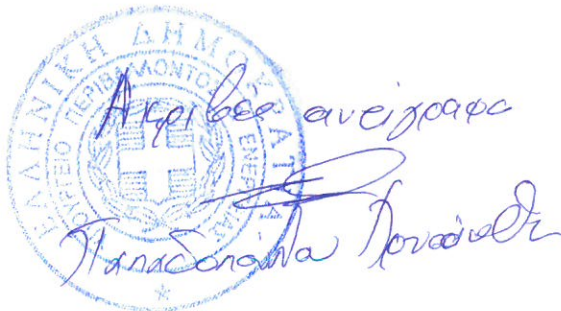 ΕΛΛΗΝΙΚΗ ΔΗΜΟΚΡΑΤΙΑ
ΥΠΟΥΡΓΕΙΟ ΠΕΡΙΒΑΛΛΟΝΤΟΣ ΕΝΕΡΓΕΙΑΣ
Ακριβές αντίγραφο
Παπαδοπούλου